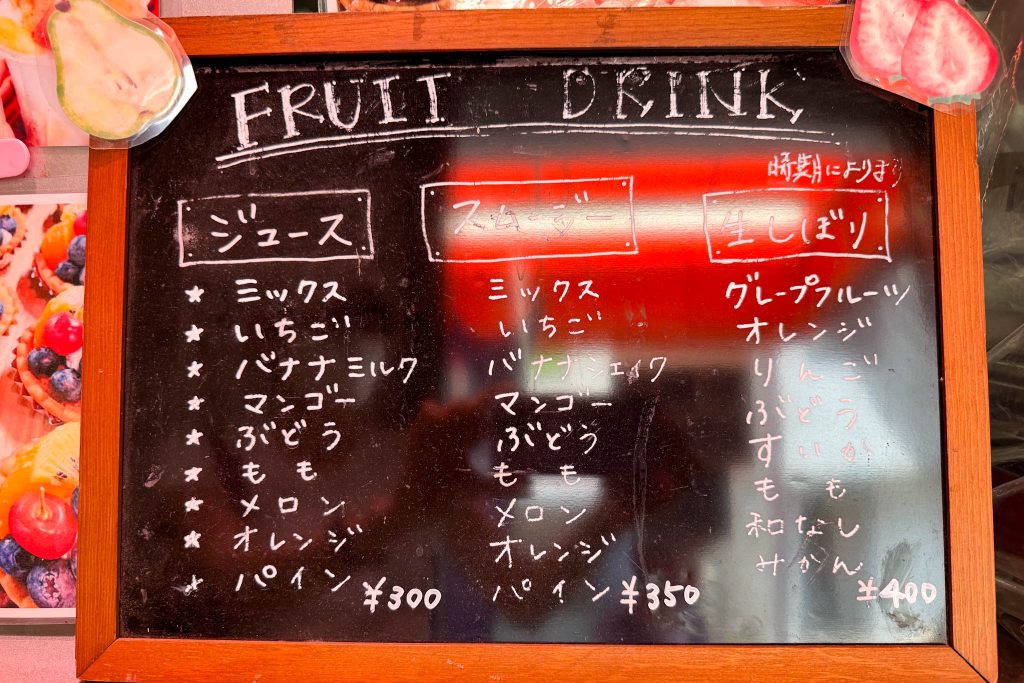 FRUIT DRINK
時期によります
ジュース
★ ミックス
★ いちご
★ バナナミルク
★ マンゴー
★ ぶどう
★ もも
★ メロン
★ オレンジ
★ パイン
¥300
スムージー
ミックス
いちご
バナナシェイク
マンゴー
ぶどう
もも
メロン
オレンジ
パイン
¥350
生しぼり
グレープフルーツ
オレンジ
りんご
ぶどう
すいか
もも
和なし
みかん
¥400